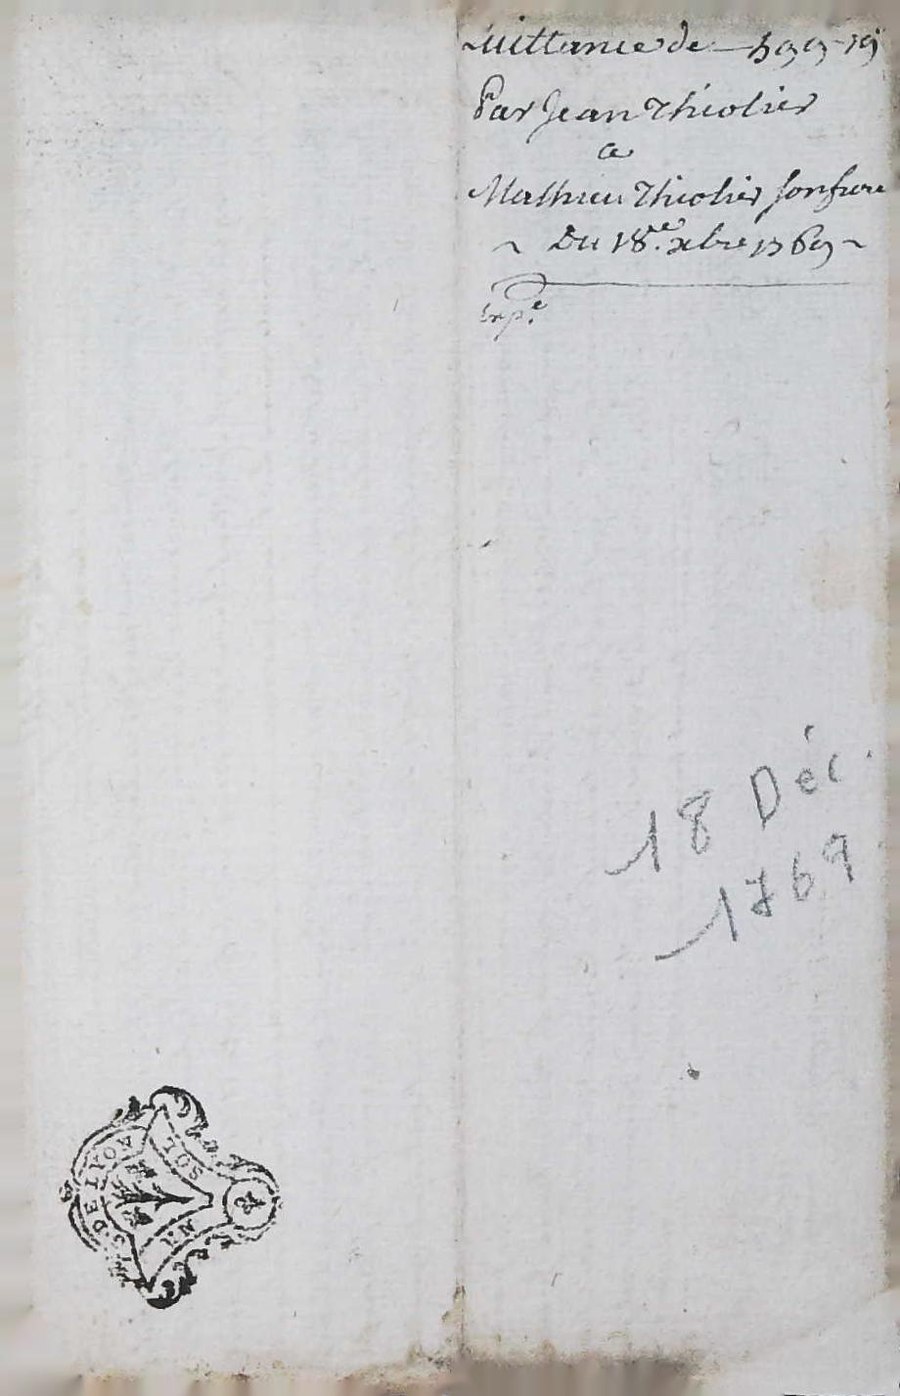 Quittance de 599-19
Par Jean Thiolier
a
Mathieu Thiolier son frere
~ Du 18.e xbre 1769 ~
Exp.e
18 Déc.
1769
SOL
UN